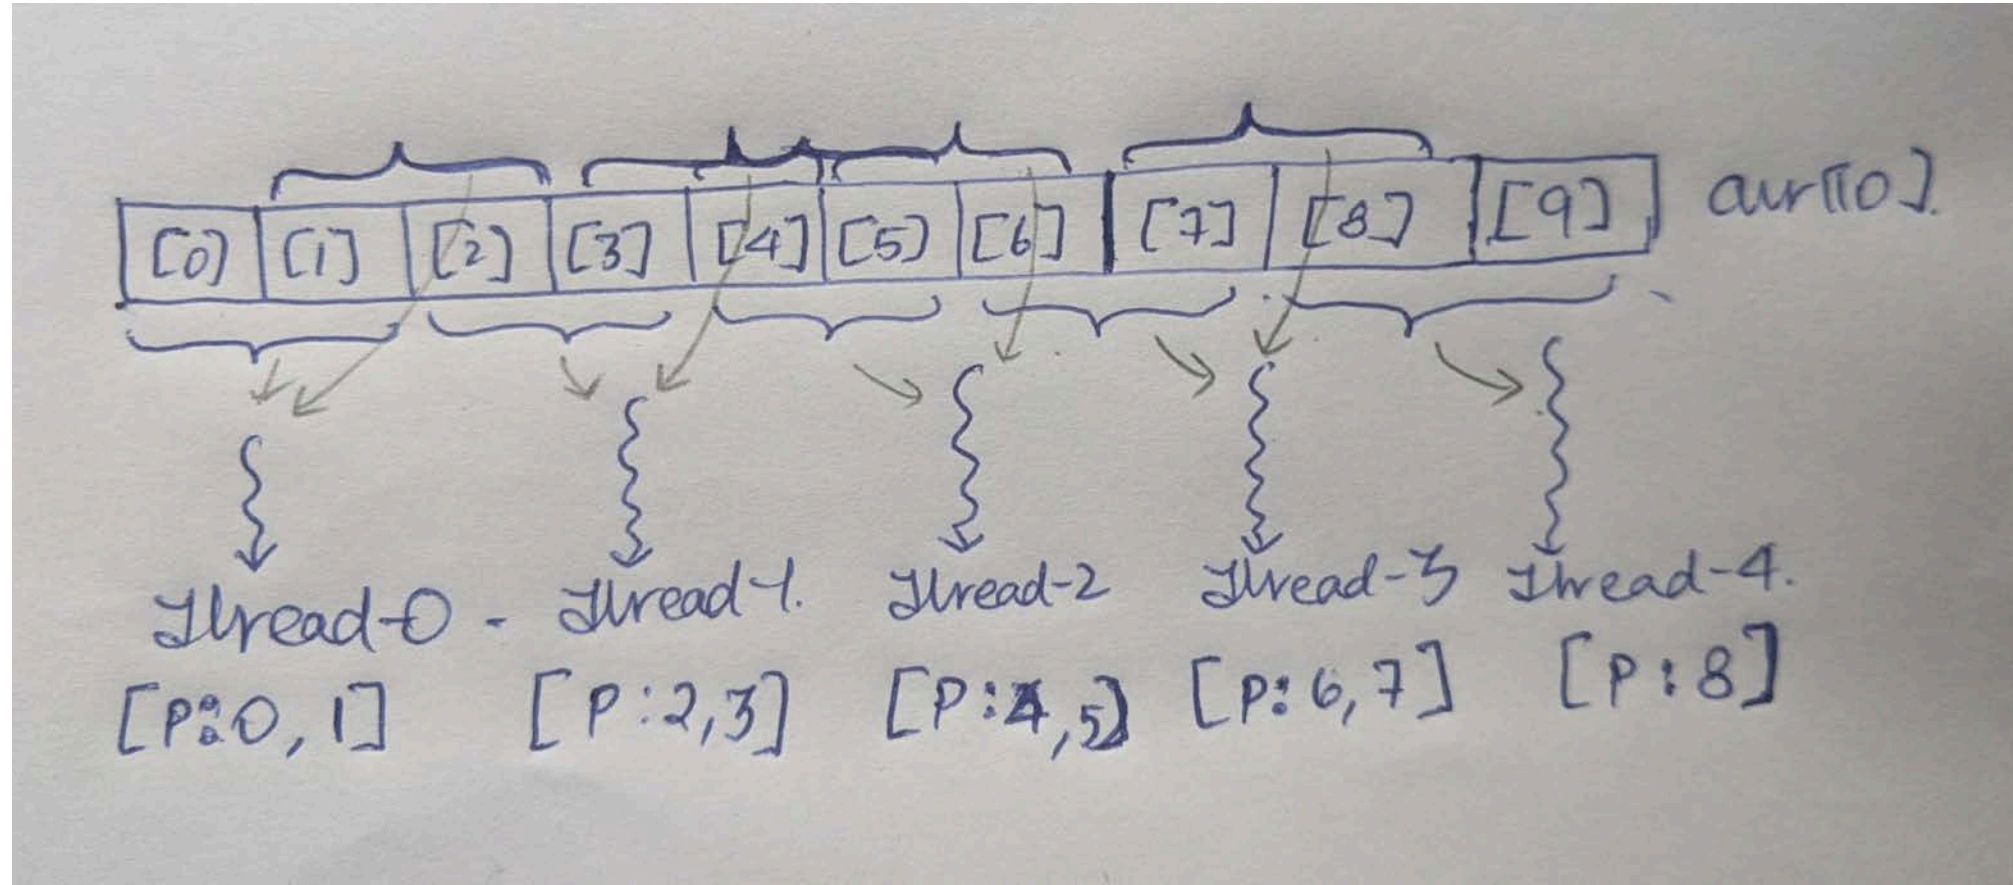 [0] [1] [2] [3] [4] [5] [6] [7] [8] [9] arr[10].
Thread-0 - Thread-1. Thread-2 Thread-3 Thread-4.
[P:0,1] [P:2,3] [P:4,5] [P:6,7] [P:8]